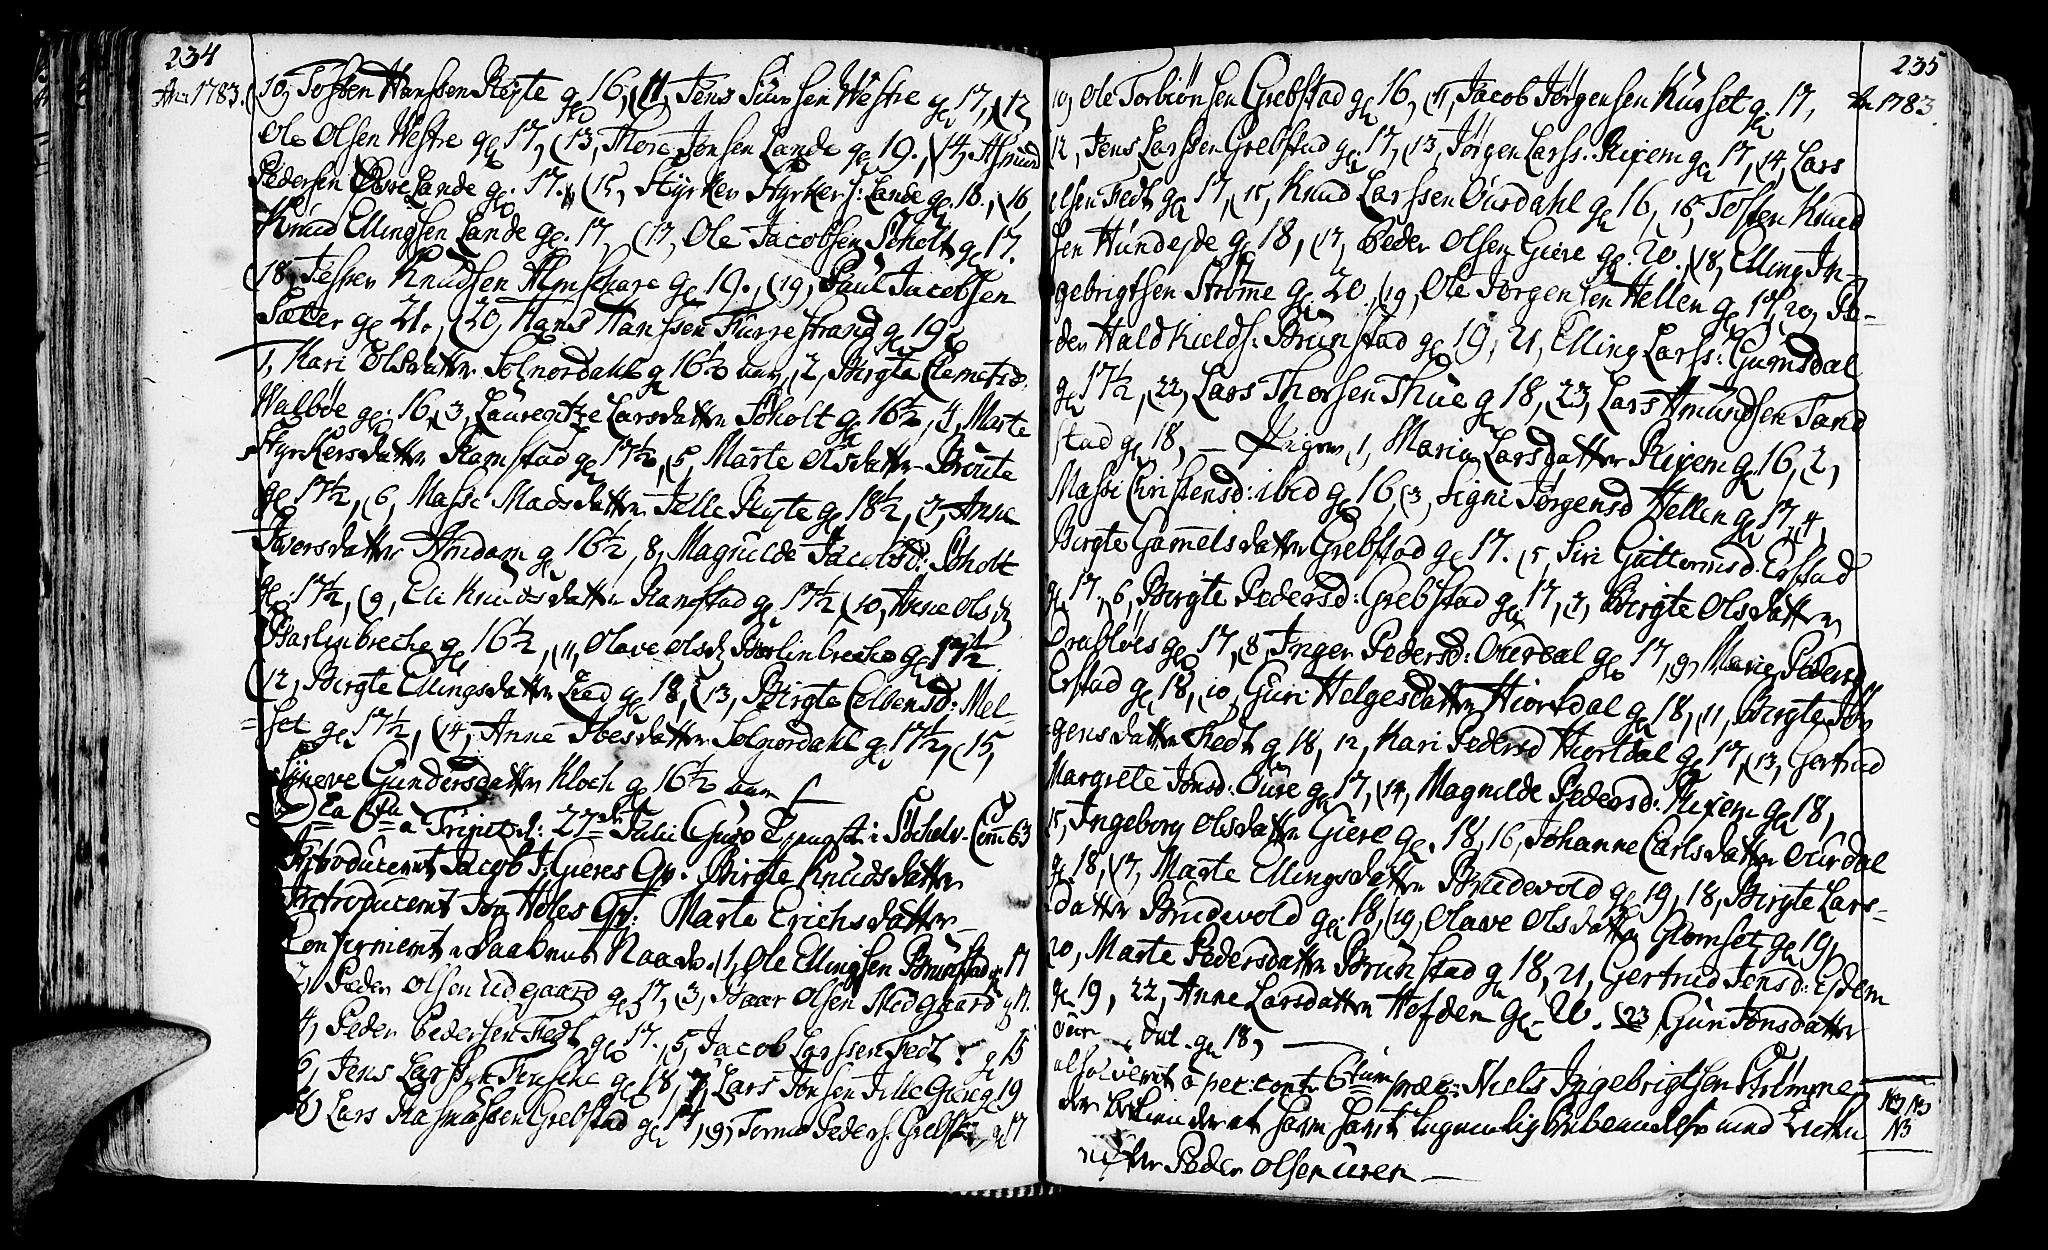 234
Ao 1783.
(10, Tosten Hanssen Røyte gl 16, (11, Jens Siursen Westre gl 17, (12,
Ole Olsen Westre gl 17, (13, Thore Jonsen Lande gl 19. (14, Asmund
Pedersen Øvre Lande gl. 17. (15, Styrker Styrkers: Lande gl. 18., (16
Knud Ellingsen Lande gl. 17, (17, Ole Jacobsen Søholt gl 17.
(18, Jesper Knudsen Almschare gl 19., (19, Paul Jacobsen
Sæter gl 21., (20, Hans Hanssen Furrestrand gl 19
1, Kari Olsdatter Solnordahl gl 16½ aar, 2, Birgte Clemetsd:
Walbøe gl: 16, (3, Laurentze Larsdatter Søholt gl 16½, 4, Marte
Styrkersdatter Ramstad gl 17½, (5, Marte Olsdatter Broute
gl 17½, (6, Massi Madsdatter Lille Røyte gl 18½, (7, Anne
Iversdatter Amdam gl 16½, 8, Magnilde Jacobsd: Søholt
gl. 17½, (9, Eli Knudsdatter Ramstad gl 17½ (10, Anne Olsd
Barlinbreche gl 16½, 11, Olave Olsd Barlinbreche gl 17½
(12, Birgte Ellingsdatter gl 18, (13, Birgte Colbensd: Mel=
=set gl 17½, (14, Anne Ibesdatter Solnordahl gl 17½, (15,
Synneve Gundersdatter Kloch gl 16½ aar
Dca 6ta a Trinit. d: 27de Julii Guds Tieneste i Søchelv. Com 63
Introduceret Jacob J: Gieres Qv: Birgte Knudsdatter
Introduceret Jon Holes Qv: Marte Erichsdatter
Confirmeret Daabens Naade. (1, Ole Ellingsen Brunstad gl 17
2, Peder Olsen Udgaard gl 17, (3, Baar Olsen Nedgaard gl 17.
4, Peder Pedersen Fedt gl 17. (5, Jacob Larssen Fedt gl 15
6, Jens Larssen gl 18, 7, Lars Jonsen Lille Giere gl 19
8) Lars Rasmussen Grebstad gl 17, (9, Tormo Peders: Grebstad gl 17
235
Ao 1783.
10, Ole Torbiønsen Grebstad gl 16, (11, Jacob Jørgensen Kurset gl 17,
12, Jens Larssen Grebstad gl 17, (13, Jørgen Larss: Rixem gl 17, (14, Lars
Olsen Fedt gl 17, (15, Knud Larssen Ourdahl gl 16, 16, Tosten Knud
sen Hundejde gl 18, (17, Peder Olsen Giere gl. 20. (18, Elling In=
gebrigtsen Strømme gl 20. (19, Ole Jørgensen Hellen gl 17, 20, Pe=
der Haldkields: Brunstad gl 19, 21, Elling Larss: Gumsdal
gl 17½, (22, Lars Thorsen Thue gl 18, (23, Lars Amundsen Tand
stad gl 18, — Piger, 1, Maria Larsdatter Rixem gl 16, 2,
Massi Christensd: ibid gl 16, (3, Signi Jørgensd Hellen gl 17, 4,
Birgte Gamelsdatter Grebstad gl 17. (5, Siri Guttormsd: Erstad
gl 17, 6, Birgte Pedersd: Grebstad gl 17, 7, Birgte Olsdatter
Drabløes gl 17, (8, Inger Pedersd: Ourdal gl 17, 9, Marie Pedersd
Erstad gl 18, 10, Guri Helgesdatter Hiortdal gl 18, (11, Birgte Jør
gensdatter Fedt gl 18, 12, Kari Pedersd Hiortdal gl 17, (13, Gertrud
Margrete Jonsd: Oure gl 17, (14, Magnilde Pedersd: Rixem gl 18,
15, Ingeborg Olsdatter Giere gl. 18, 16, Johanne Carlsdatter Ourdal
gl 18, (17, Marte Ellingsdatter Brudevold gl 19, 18, Birgte Lars=
datter Brudevold gl: 18, (19, Olave Olsdatter Glomset gl 19,
20, Marte Pedersdatter Brunstad gl 18, 21, Gertrud Jensd: Ejdem
gl 19, 22, Anne Larsdatter Hofden gl. 20. (23, Guri Jonsdatter
Our dal. gl 18,
absolverit a pec: contr: 6tum præc: Niels Ingebrigtsen Strømme
der at have havt med
Peder Olsen Uren —